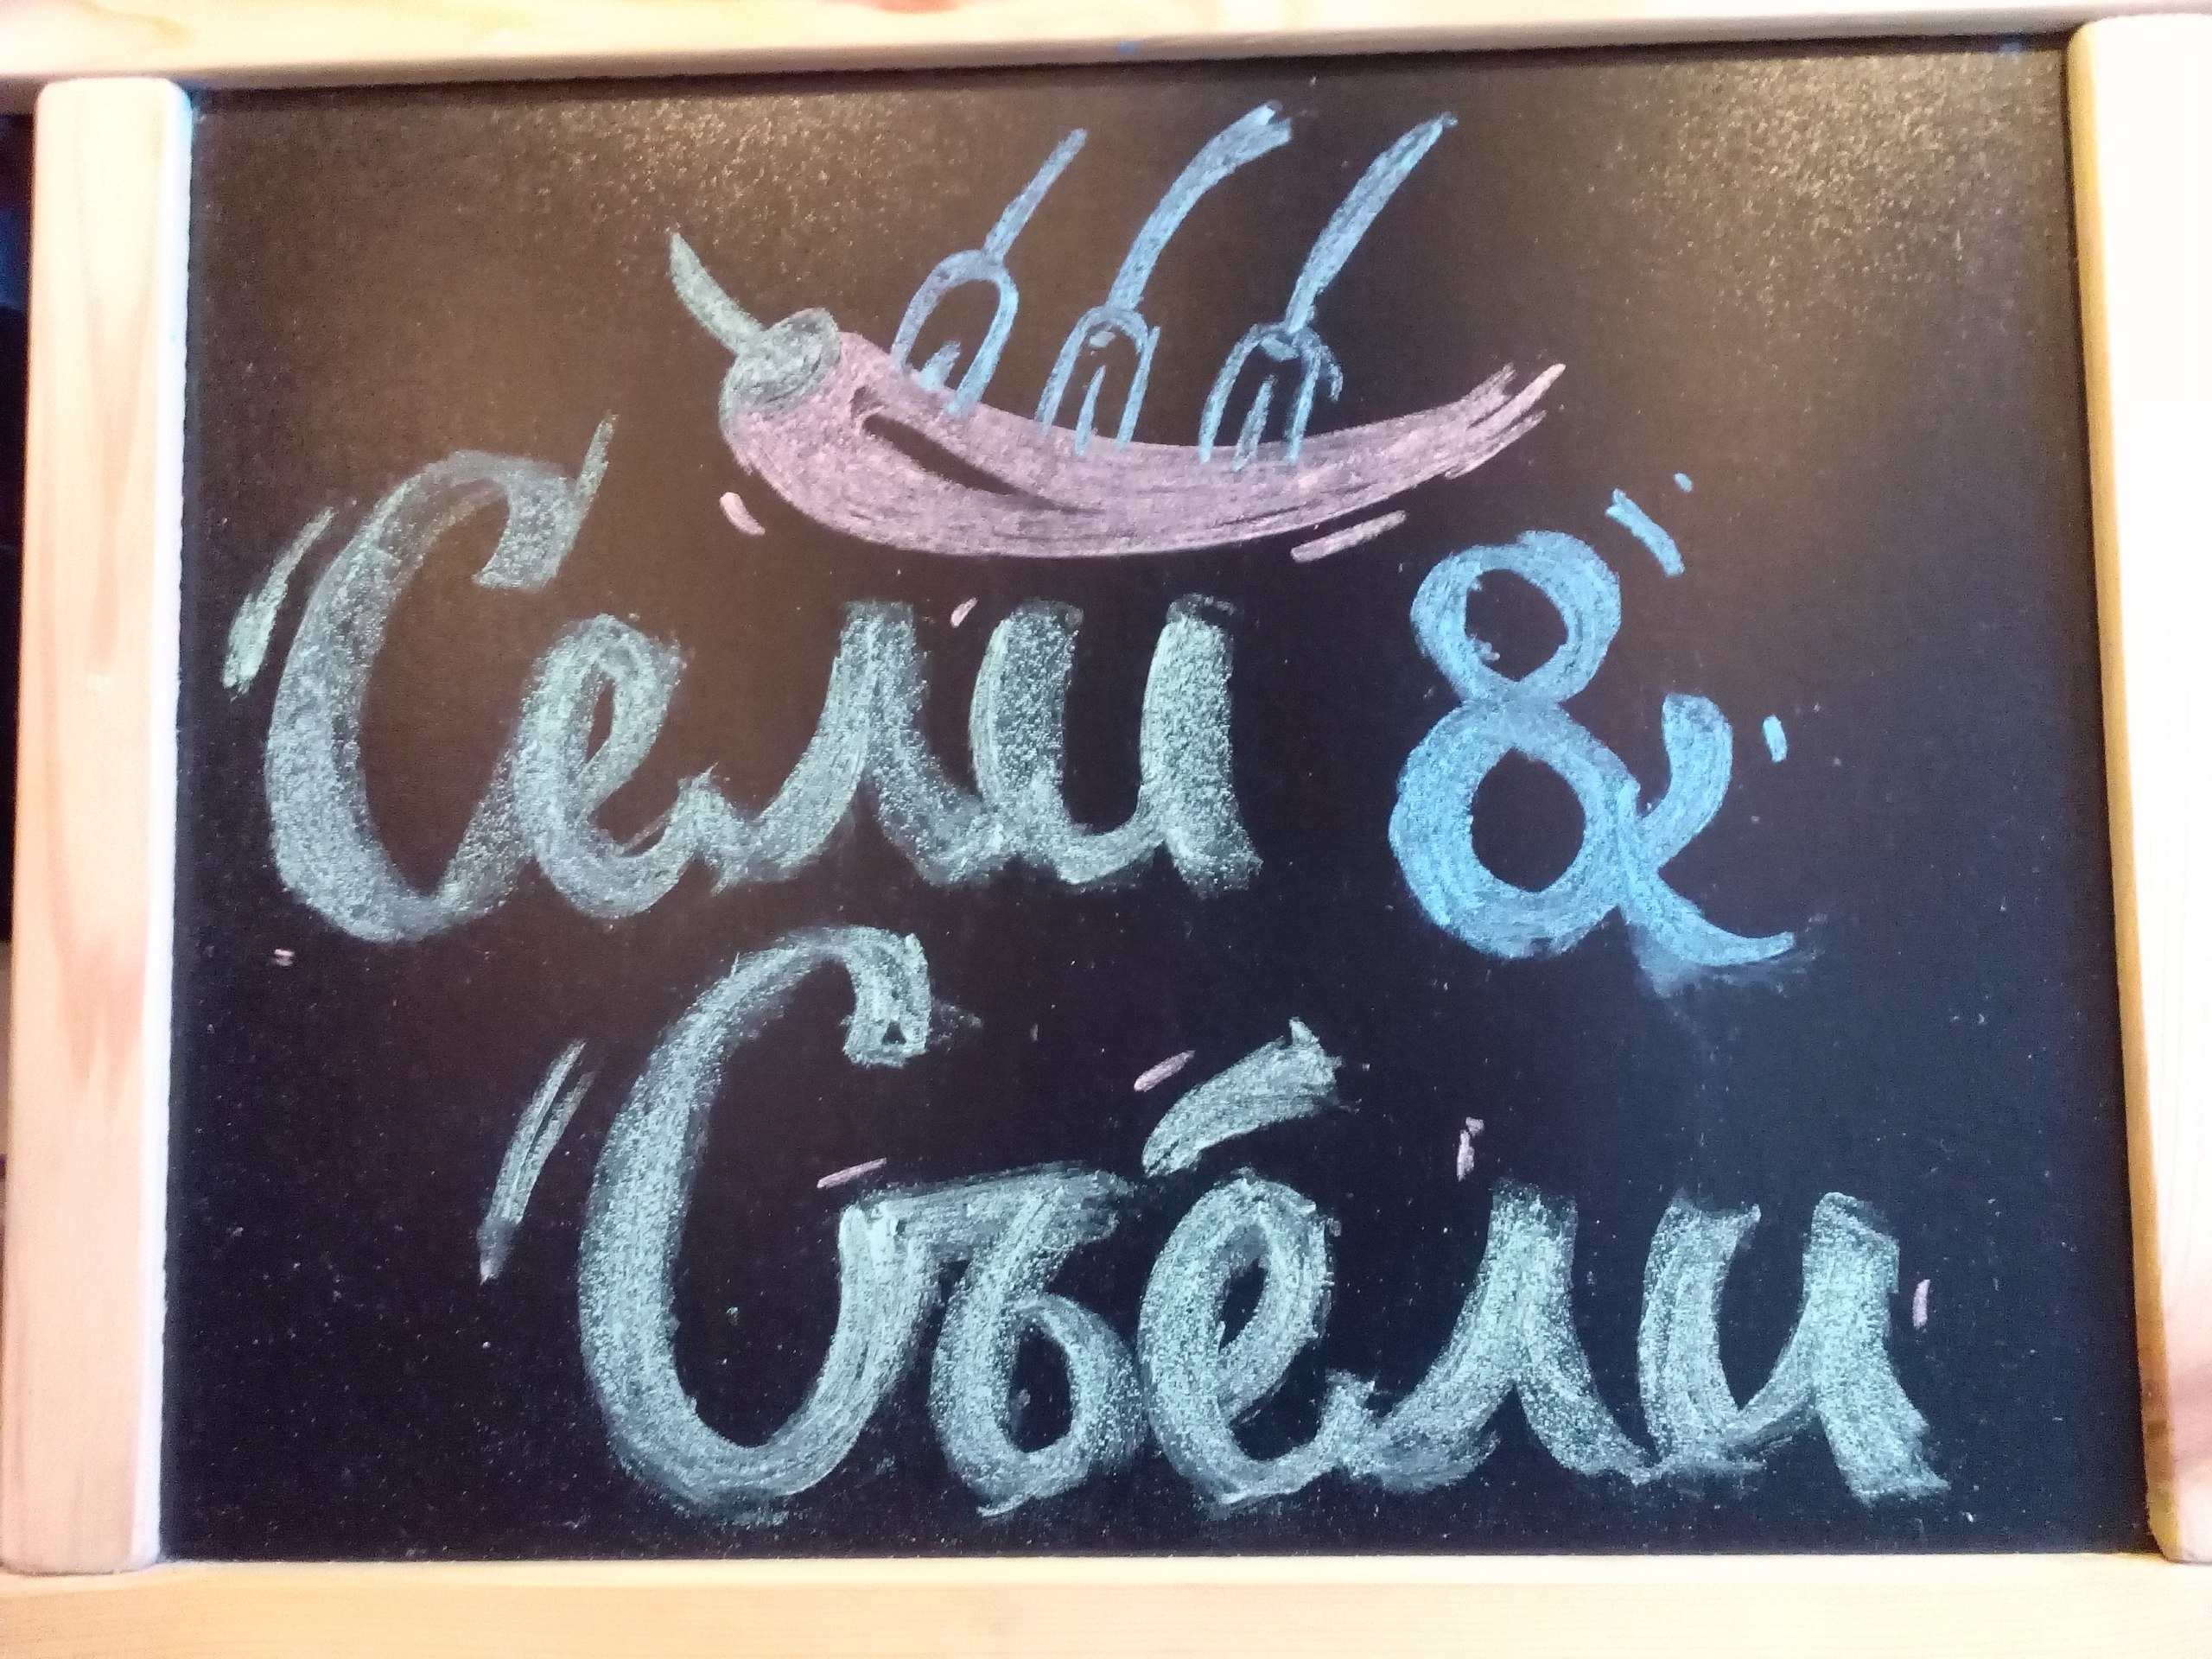 Сели &
Съели